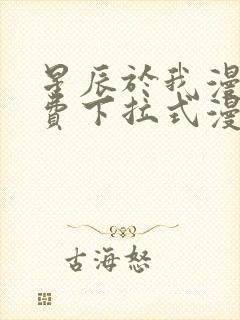 星辰於我漫
費下拉式漫
古海怒